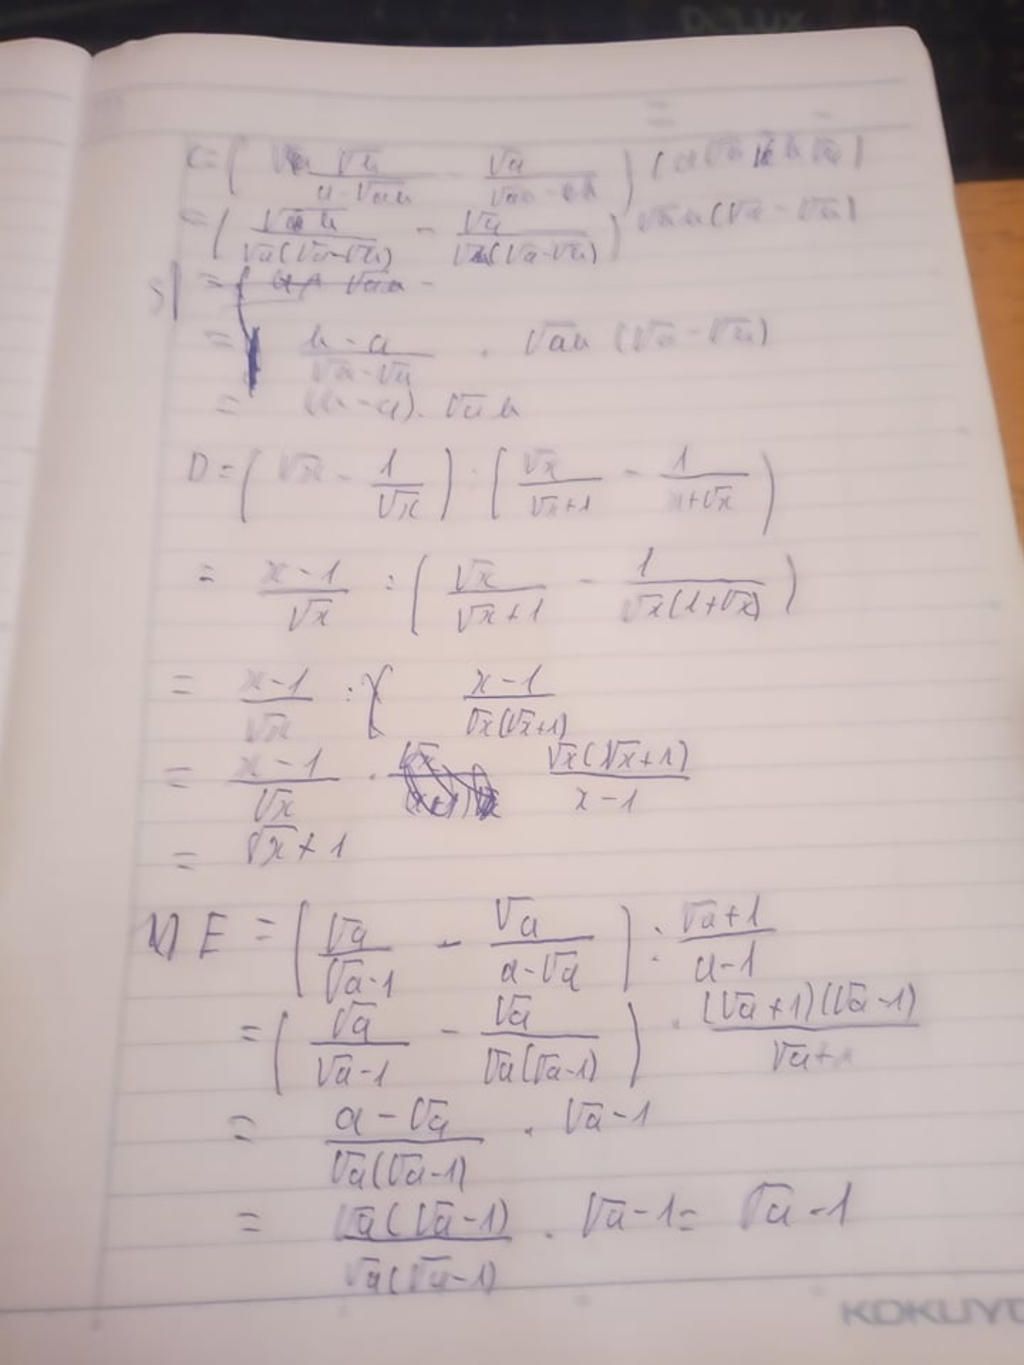 C = ( √b / (a - √ab) - √a / (√ab - b) ) (a√b - b√a)
= ( √b / √a(√a-√b) - √a / √b(√a-√b) ) √ab(√a - √b)
= √ab -
= (b - a) / (√a - √b) . √ab (√a - √b)
= (b - a) . √ab
D = ( √x - 1/√x ) : ( √x / (√x+1) - 1 / (x+√x) )
= (x - 1) / √x : ( √x / (√x+1) - 1 / √x(1+√x) )
= (x-1) / √x : (x-1) / √x(√x+1)
= (x-1) / √x . √x(√x+1) / (x-1)
= √x + 1
E = ( √a / (√a-1) - √a / (a-√a) ) : (√a+1) / (a-1)
= ( √a / (√a-1) - √a / √a(√a-1) ) . (√a+1)(√a-1) / (√a+1)
= (a-√a) / √a(√a-1) . √a-1
= √a(√a-1) / √a(√a-1) . √a-1 = √a-1
KOKUYO